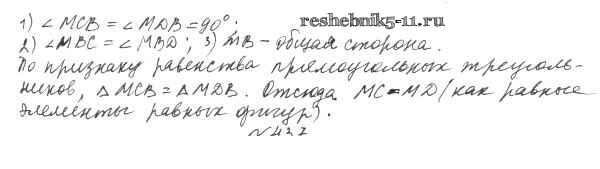 1) ∠MCB = ∠MDB = 90°.
reshebnik5-11.ru
2) ∠MBC = ∠MBD; 3) MB – общая сторона.
По признаку равенства прямоугольных треуголь-
ников, △MCB = △MDB. Отсюда MC = MD (как равные
элементы равных фигур).
№422